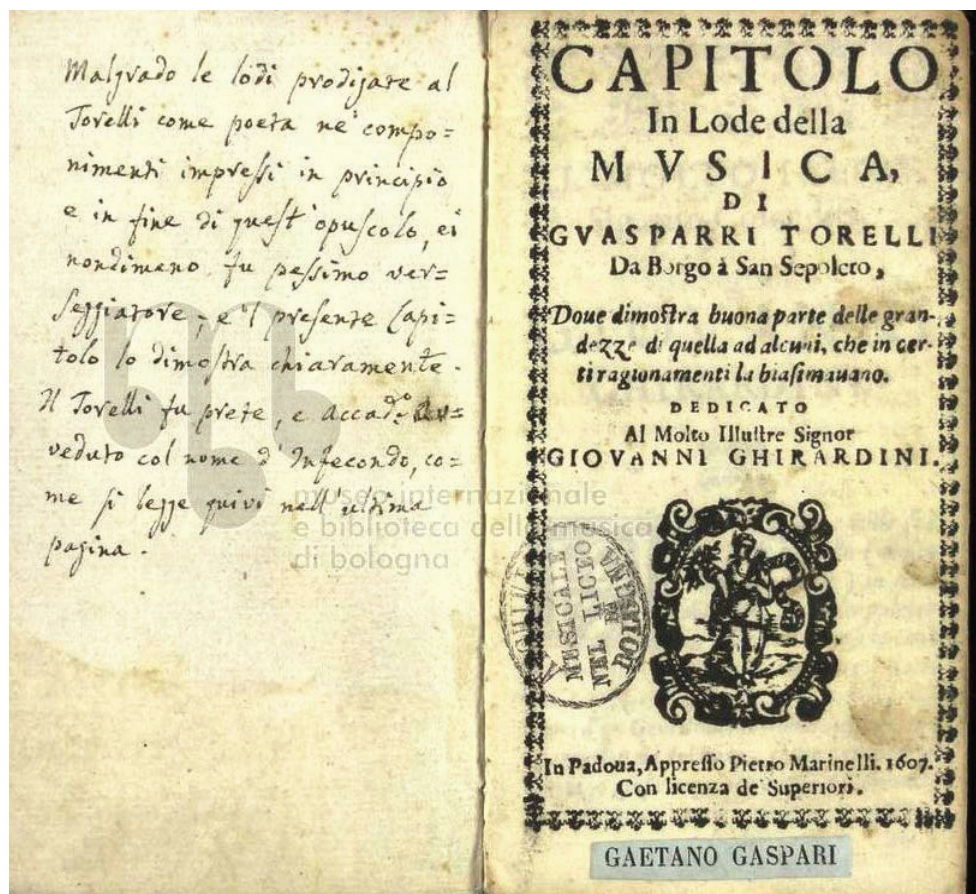 Malgrado le lodi prodigate al
Torelli come poeta ne' compo=
nimenti impressi in principio
e in fine di quest' opuscolo, ei
nondimeno fu pessimo ver=
seggiatore; e 'l presente Capi=
tolo lo dimostra chiaramente.
Il Torelli fu prete, e Accad.º Av=
veduto col nome d' Infecondo, co=
me si legge quivi nell' ultima
pagina.
museo internazionale
e biblioteca della musica
di bologna
CAPITOLO
In Lode della
MVSICA,
DI
GVASPARRI TORELLI
Da Borgo à San Sepolcro,
Doue dimostra buona parte delle gran-
dezze di quella ad alcuni, che in cer-
ti ragionamenti la biasimauano.
DEDICATO
Al Molto Illustre Signor
GIOVANNI GHIRARDINI.
MUSICALE
NEL LICEO
BOLOGNA
In Padoua, Appresso Pietro Marinelli. 1607.
Con licenza de' Superiori.
GAETANO GASPARI